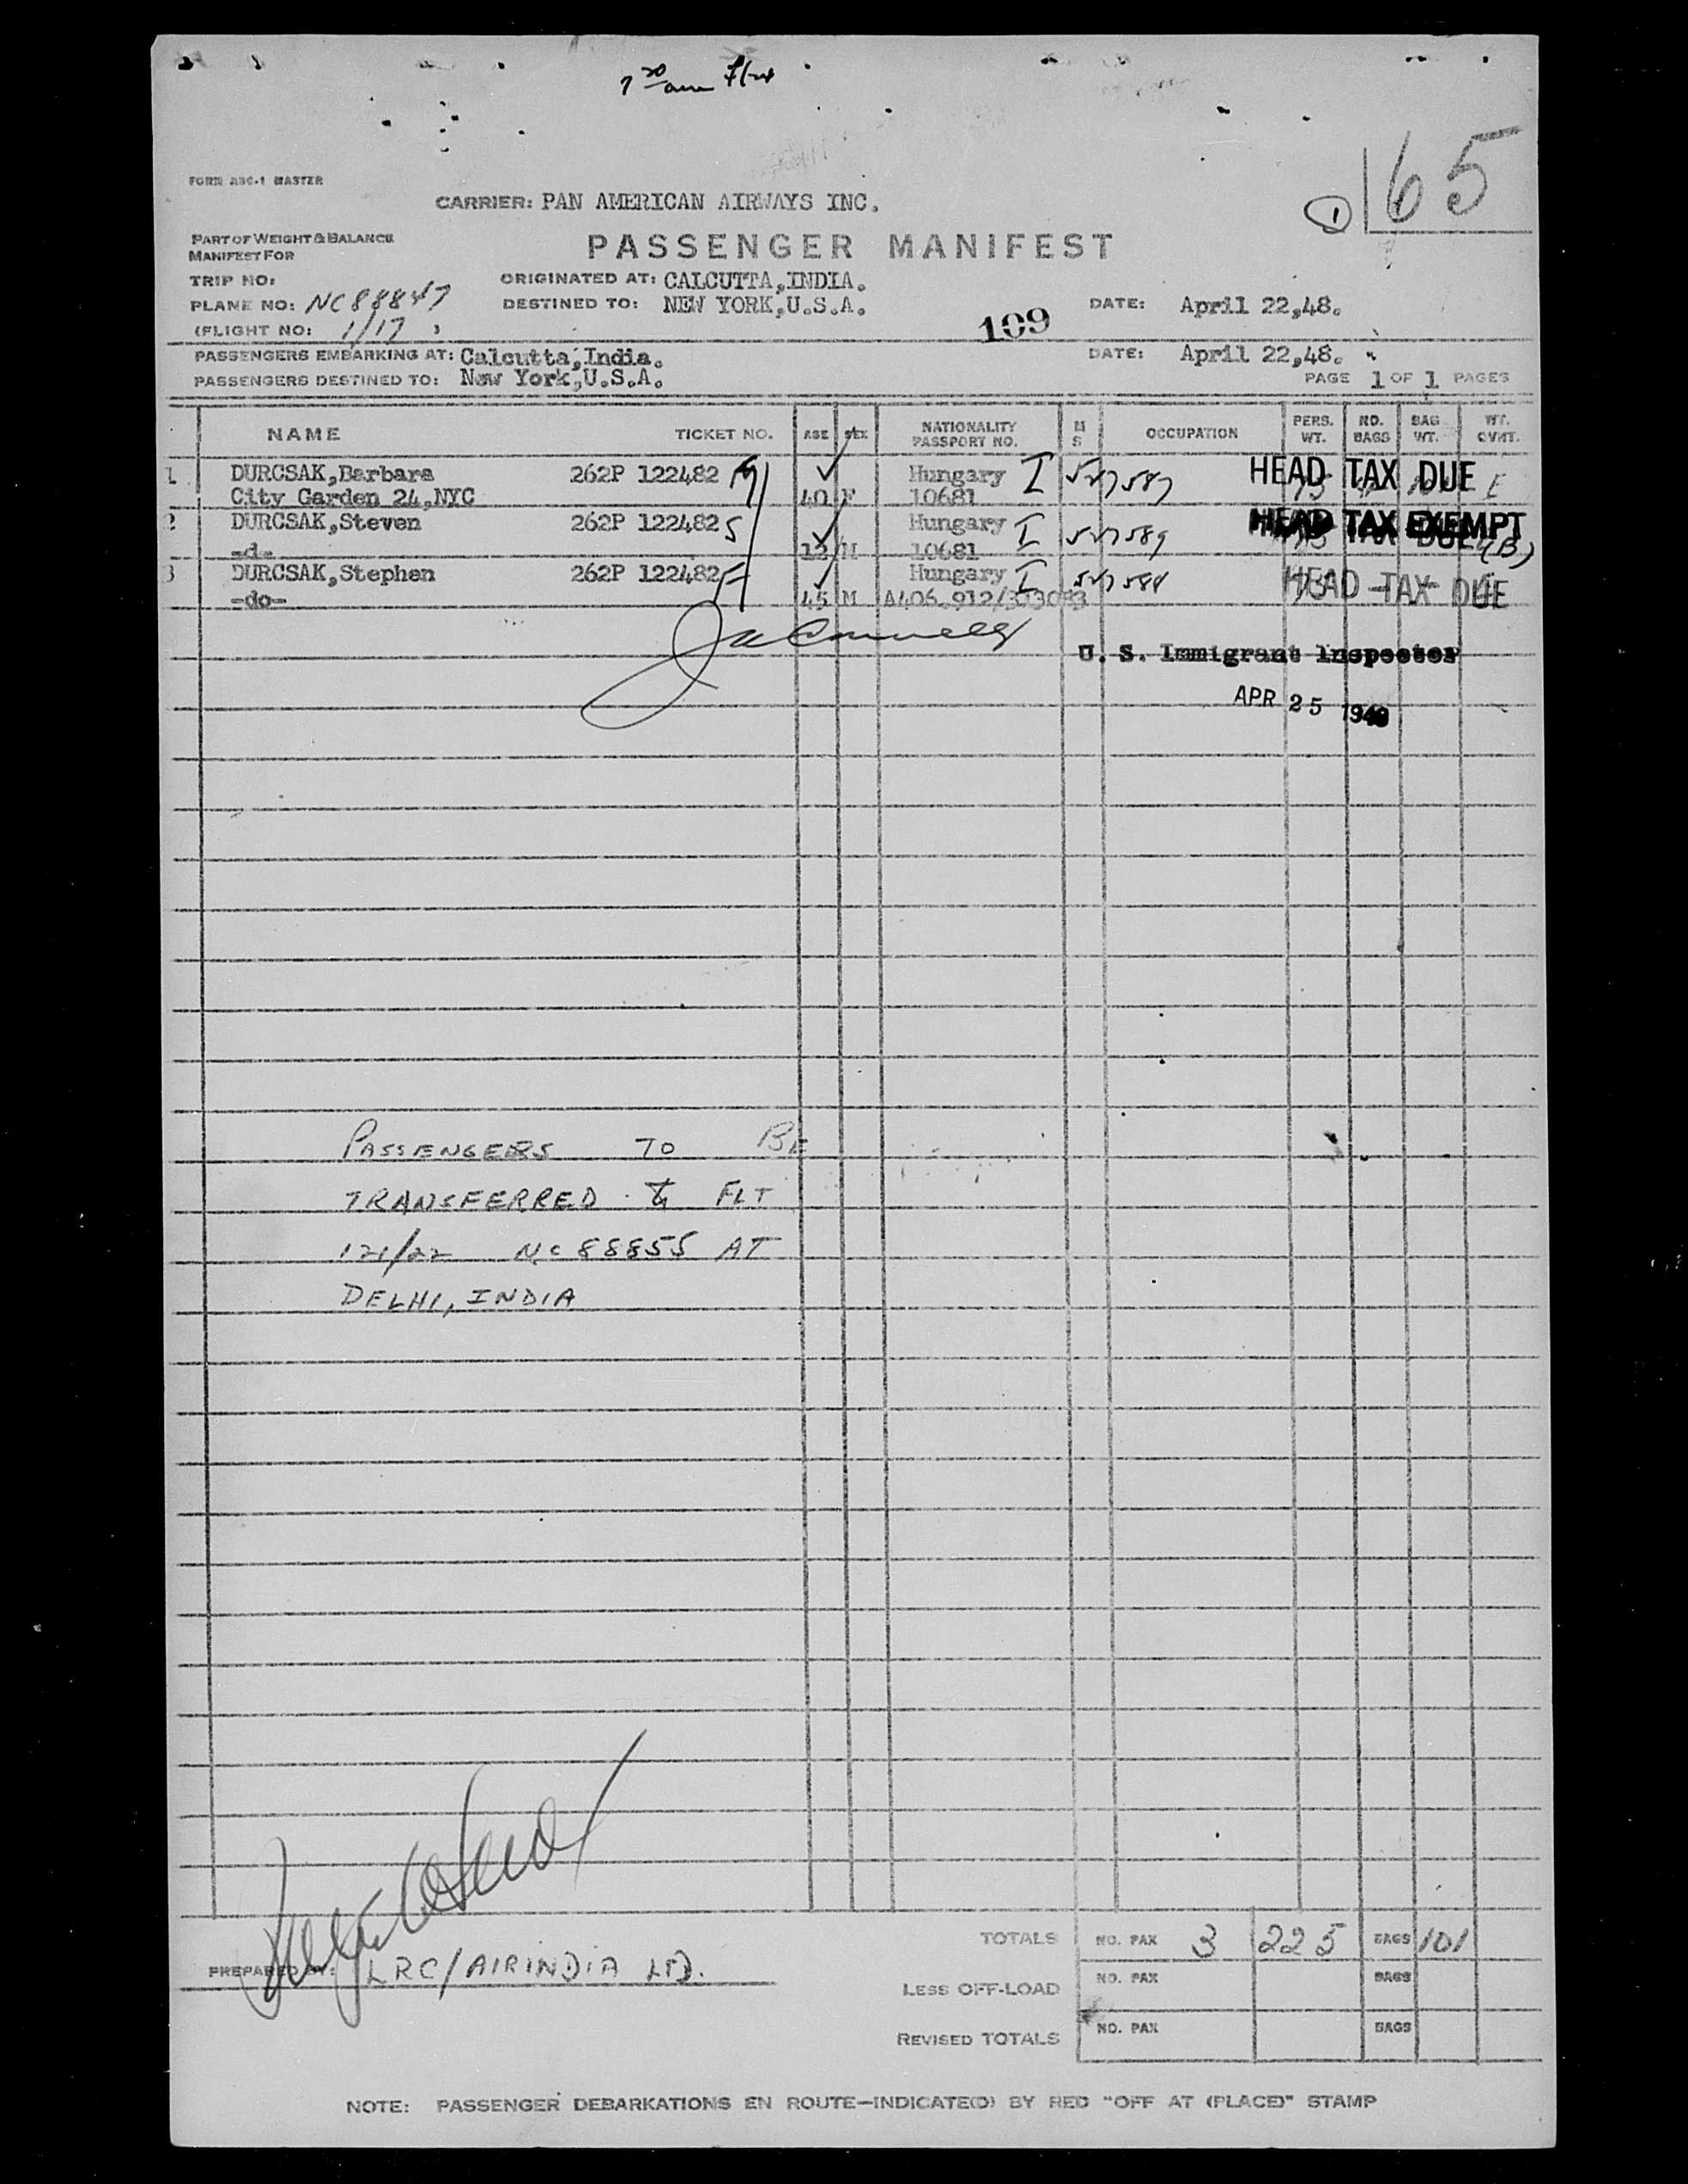 7 30 am
FORM ABC-1 MASTER
1 65
CARRIER: PAN AMERICAN AIRWAYS INC.
PART OF WEIGHT & BALANCE
MANIFEST FOR
PASSENGER MANIFEST
TRIP NO:
ORIGINATED AT: CALCUTTA, INDIA.
PLANE NO: NC88847
DESTINED TO: NEW YORK, U.S.A.
DATE: April 22,48.
(FLIGHT NO: 1/17 )
109
PASSENGERS EMBARKING AT: Calcutta, India.
DATE: April 22,48.
PASSENGERS DESTINED TO: New York, U.S.A.
PAGE 1 OF 1 PAGES
NAME TICKET NO. AGE SEX NATIONALITY PASSPORT NO. M S OCCUPATION PERS. WT. NO. BAGS BAG WT. WT. OVHT.
1 DURCSAK, Barbara 262P 122482 M Hungary I 527587 HEAD TAX DUE
City Garden 24, NYC 40 F 10681
2 DURCSAK, Steven 262P 122482 S Hungary I 527589 HEAD TAX EXEMPT
-d- 12 M 10681 (B)
3 DURCSAK, Stephen 262P 122482 F Hungary I 527588 HEAD TAX DUE
-do- 45 M
U. S. Immigrant Inspector
APR 25 1948
PASSENGERS TO BE
TRANSFERRED to FLT
121/22 NC 88855 AT
DELHI, INDIA
TOTALS NO. PAX 3 225 BAGS 101
PREPARED BY: LRC/AIRINDIA LTD.
LESS OFF-LOAD NO. PAX BAGS
REVISED TOTALS NO. PAX BAGS
NOTE: PASSENGER DEBARKATIONS EN ROUTE—INDICATE(D) BY RED "OFF AT (PLACE)" STAMP